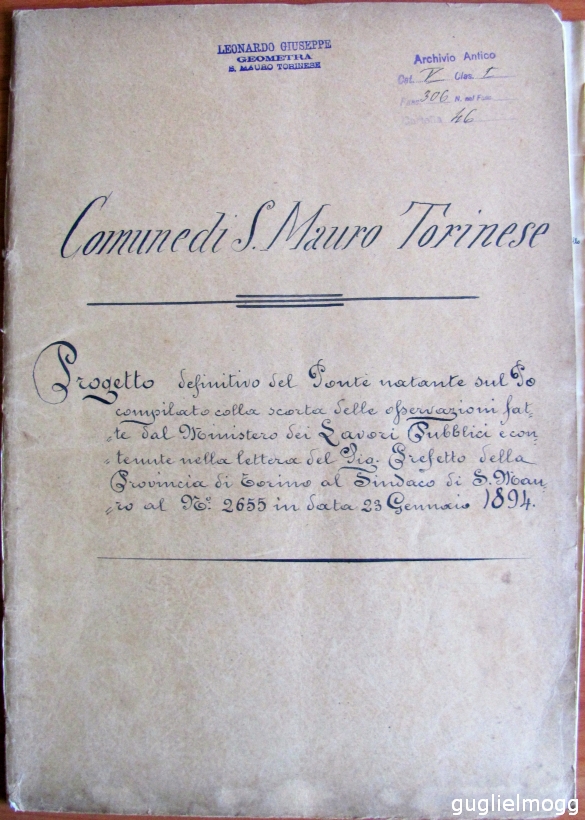 LEONARDO GIUSEPPE
GEOMETRA
S. MAURO TORINESE
Archivio Antico
Cat. V Clas. I
Fasc. 306 N. nel Fasc.
46
Comune di S. Mauro Torinese
Progetto definitivo del Ponte natante sul Po
compilato colla scorta delle osservazioni fat-
-te dal Ministero dei Lavori Pubblici e con-
-tenute nella lettera del Sig. Prefetto della
Provincia di Torino al Sindaco di S. Mau-
-ro al N.º 2655 in data 23 Gennaio 1894.
guglielmogg